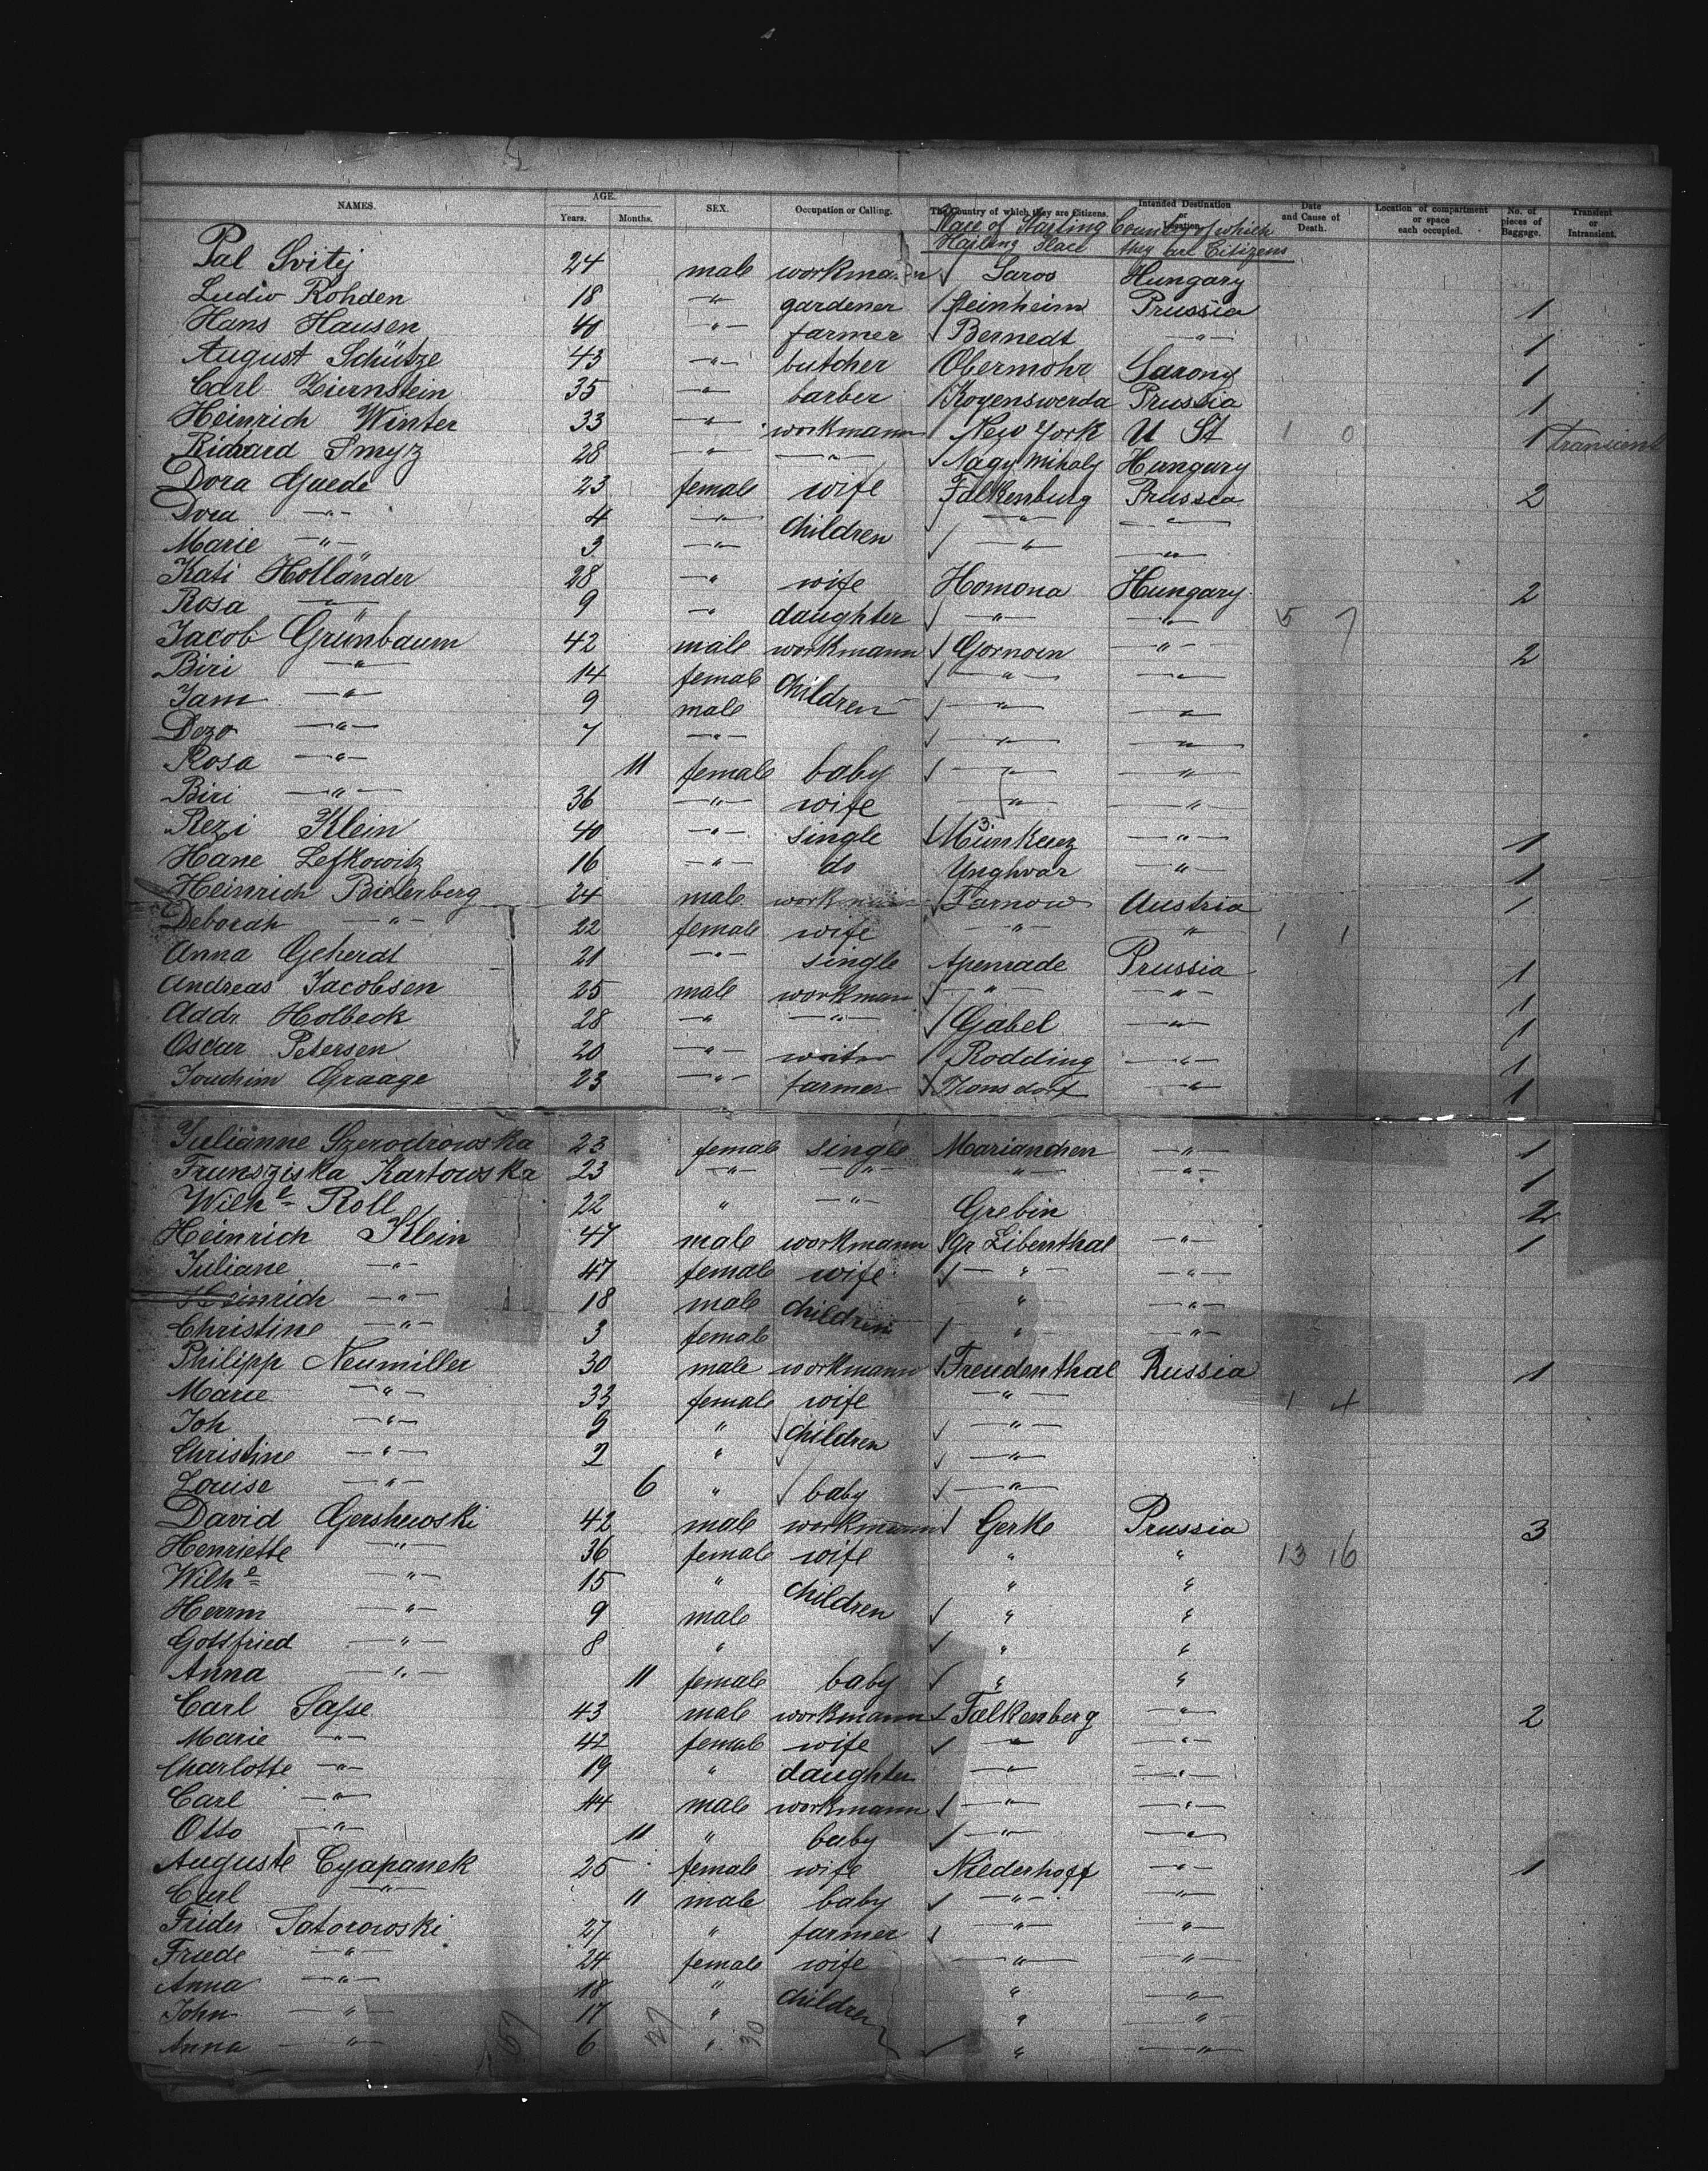 NAMES. AGE. Years. Months. SEX. Occupation or Calling. The Country of which they are Citizens. Intended Destination or Location. Date and Cause of Death. Location of compartment or space each occupied. No. of pieces of Baggage. Transient or Intransient.
Place of Starting Country of which
Hailing Place they are Citizens
Pal Svitij 24 male workmann ✓ Saros Hungary
Ludw Rohden 18 " gardener / Steinheim Prussia 1
Hans Hausen 40 " farmer / Bernedt " 1
August Schütze 43 " butcher / Obermohr Saxony 1
Carl Ziernstein 35 " barber / Koyenswerda Prussia 1
Heinrich Winter 33 " workmann / New York U St 1 0 1 transient
Richard Smyz 28 " " ✓ Nagy Mihaly Hungary
Dora Guede 23 female wife Falkenburg Prussia 2
Dora " 4 " children " "
Marie " 3 " ✓ " "
Kati Holländer 28 " wife Homona Hungary 2
Rosa " 9 " daughter ✓ " " 5 7
Jacob Grünbaum 42 male workmann ✓ Gornoen " 2
Biri " 14 female children ✓ " "
Jam " 9 male ✓ " "
Dezo " 7 " ✓ " "
Rosa " 11 female baby ✓ " "
Biri " 36 " wife " "
Rezi Klein 40 " single ✓ 3 Munkucz " 1
Hane Lefkowitz 16 " do Unghvar " 1
Heinrich Bielerberg 24 male ✓ Tarnow Austria 1
Deborah " 22 female wife " " 1 1
Anna Geherdt 21 " single Apenrade Prussia 1
Andreas Jacobsen 25 male workman ✓ " " 1
Addr. Holbeck 28 " " ✓ Gabel " 1
Oscar Petersen 20 " writer / Rodding " 1
Joachim Graage 23 " farmer ✓ Ransdorf " 1
Julianne Szerodrowska 23 female single Mariandren " 1
Frunsziska Kartowska 23 " " " " 1
Wilhe Roll 22 " " Grebin 2
Heinrich Klein 47 male workmann ✓ Gr Libenthal " 1
Juliane " 47 female wife ✓ " "
Heinrich " 18 male children " "
Christine " 3 female / " "
Philipp Neumiller 30 male workmann ✓ Freudenthal Russia 1
Marie " 33 female wife " 1 4
Joh " 9 " ✓ children ✓ "
Christine " 2 " ✓ "
Louise " 6 " ✓ baby ✓ "
David Gershewski 42 male workmann ✓ Gerke Prussia 3
Henriette " 36 female wife " " 13 16
Wilhe " 15 " children " "
Herrm " 9 male ✓ " "
Gottfried " 8 " ✓ " "
Anna " 11 female baby ✓ " "
Carl Sasse 43 male workmann ✓ Falkenberg " 2
Marie " 42 female wife ✓ " "
Charlotte " 19 " daughter " "
Carl " 44 male workmann ✓ " "
Otto " 11 " baby ✓ " "
Auguste Cyapanek 25 female wife Niederhoff " 1
Carl " 11 male baby ✓ " "
Frider Satorowski 27 " farmer ✓ " "
Friede " 24 female wife " "
Anna " 18 " children " "
John " 17 " " "
Anna " 6 " ✓ " "